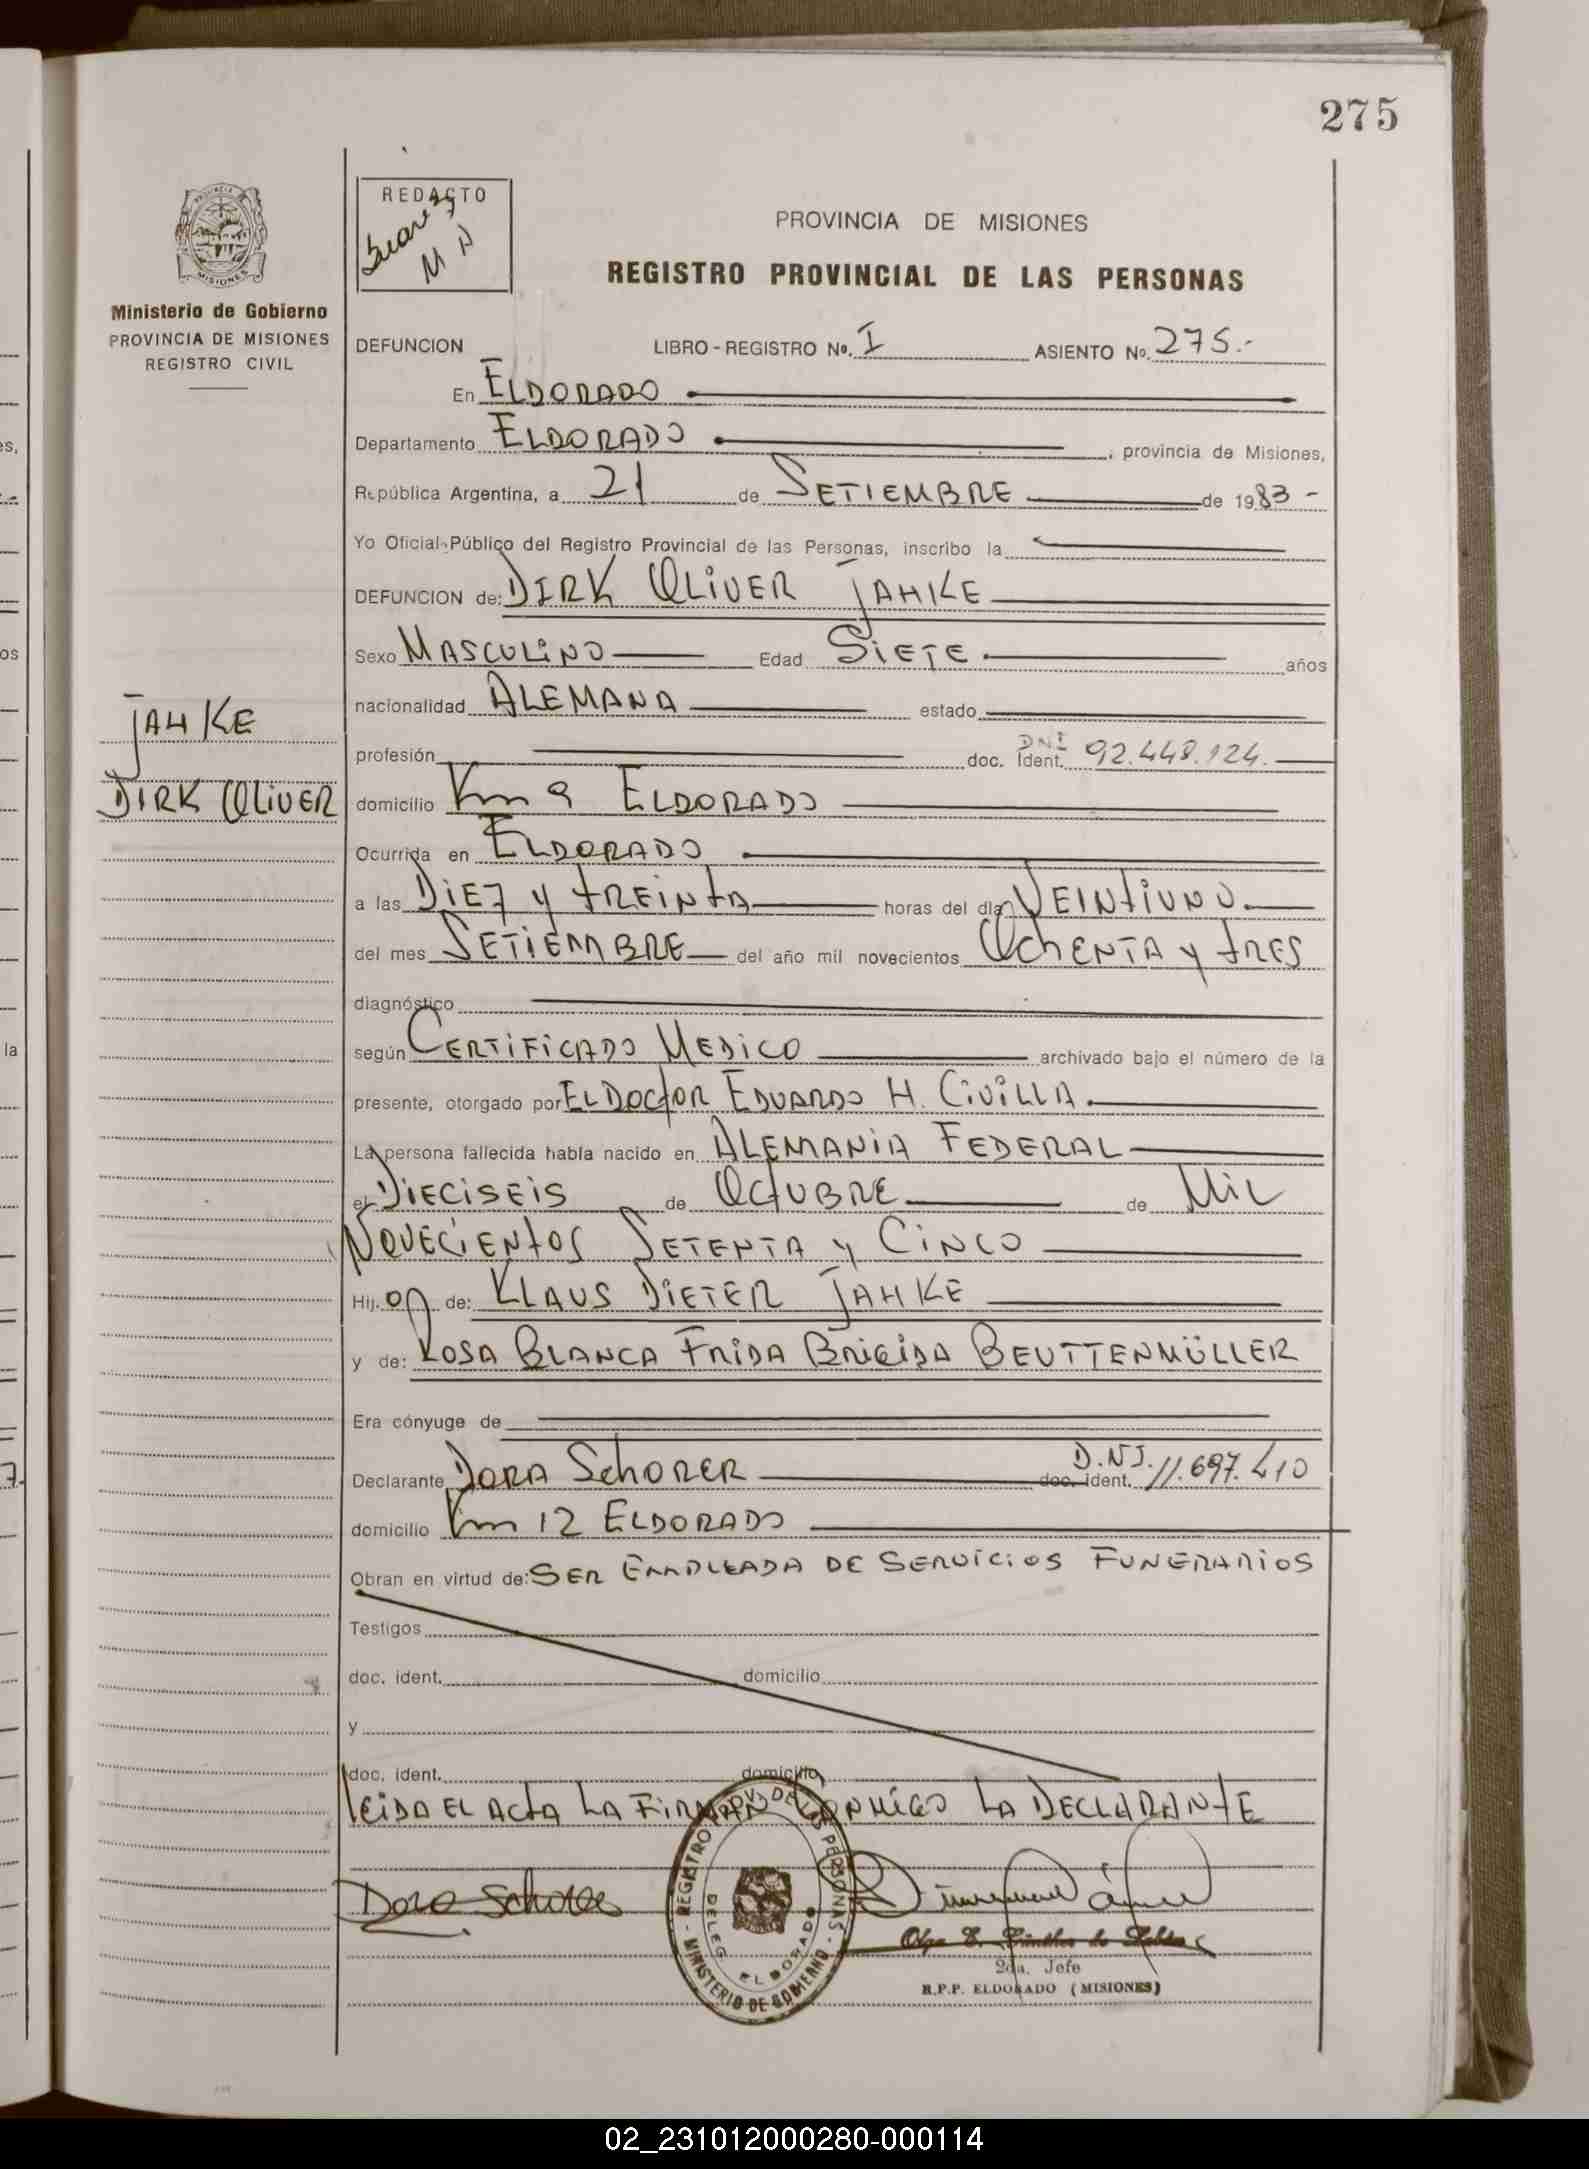 275
REDACTO
Suarez
M A
PROVINCIA DE MISIONES
REGISTRO PROVINCIAL DE LAS PERSONAS
PROVINCIA
MISIONES
Ministerio de Gobierno
PROVINCIA DE MISIONES
REGISTRO CIVIL
DEFUNCION LIBRO-REGISTRO No. I ASIENTO No. 275.-
En ELDORADO
Departamento ELDORADO, provincia de Misiones,
República Argentina, a 21 de SETIEMBRE de 1983-
Yo Oficial Público del Registro Provincial de las Personas, inscribo la
DEFUNCION de: DIRK OLIVER JAHKE
Sexo MASCULINO Edad SIETE años
nacionalidad ALEMANA estado
JAHKE
DIRK OLIVER
profesión doc. Ident. DNI 92.448.124.
domicilio Km 9 ELDORADO
Ocurrida en ELDORADO
a las DIEZ y tREINtA horas del día VEINtiUNO.
del mes SETIEMBRE del año mil novecientos OchENTA y tRES
diagnóstico
según CERTIFICADO MEDICO archivado bajo el número de la
presente, otorgado por EL DOCtOR EDUARDO H. CIVILLA.
La persona fallecida había nacido en ALEMANIA FEDERAL
el DIECISEIS de OCtUBRE de MIL
NOVECIENtOS SETENTA y CINCO
Hij. o de: KLAUS DIETER JAHKE
y de: ROSA BLANCA FRIDA BRIGIDA BEUTTENMÜLLER
Era cónyuge de
Declarante DORA SchORER doc. ident. D.NI. 11.697.410
domicilio Km 12 ELDORADO
Obran en virtud de: SER EMPLEADA DE SERVICIOS FUNERARIOS
Testigos
doc. ident. domicilio
y
doc. ident. domicilio
LEIDA EL ACtA LA FIRMAN CONMIGO LA DECLARANtE
Dora Schorer
REGISTRO PROV. DE LAS PERSONAS - MINISTERIO DE GOBIERNO -
DELEG. ELDORADO
2da. Jefe
R.P.P. ELDORADO (MISIONES)
es,
os
la
7.
02_231012000280-000114